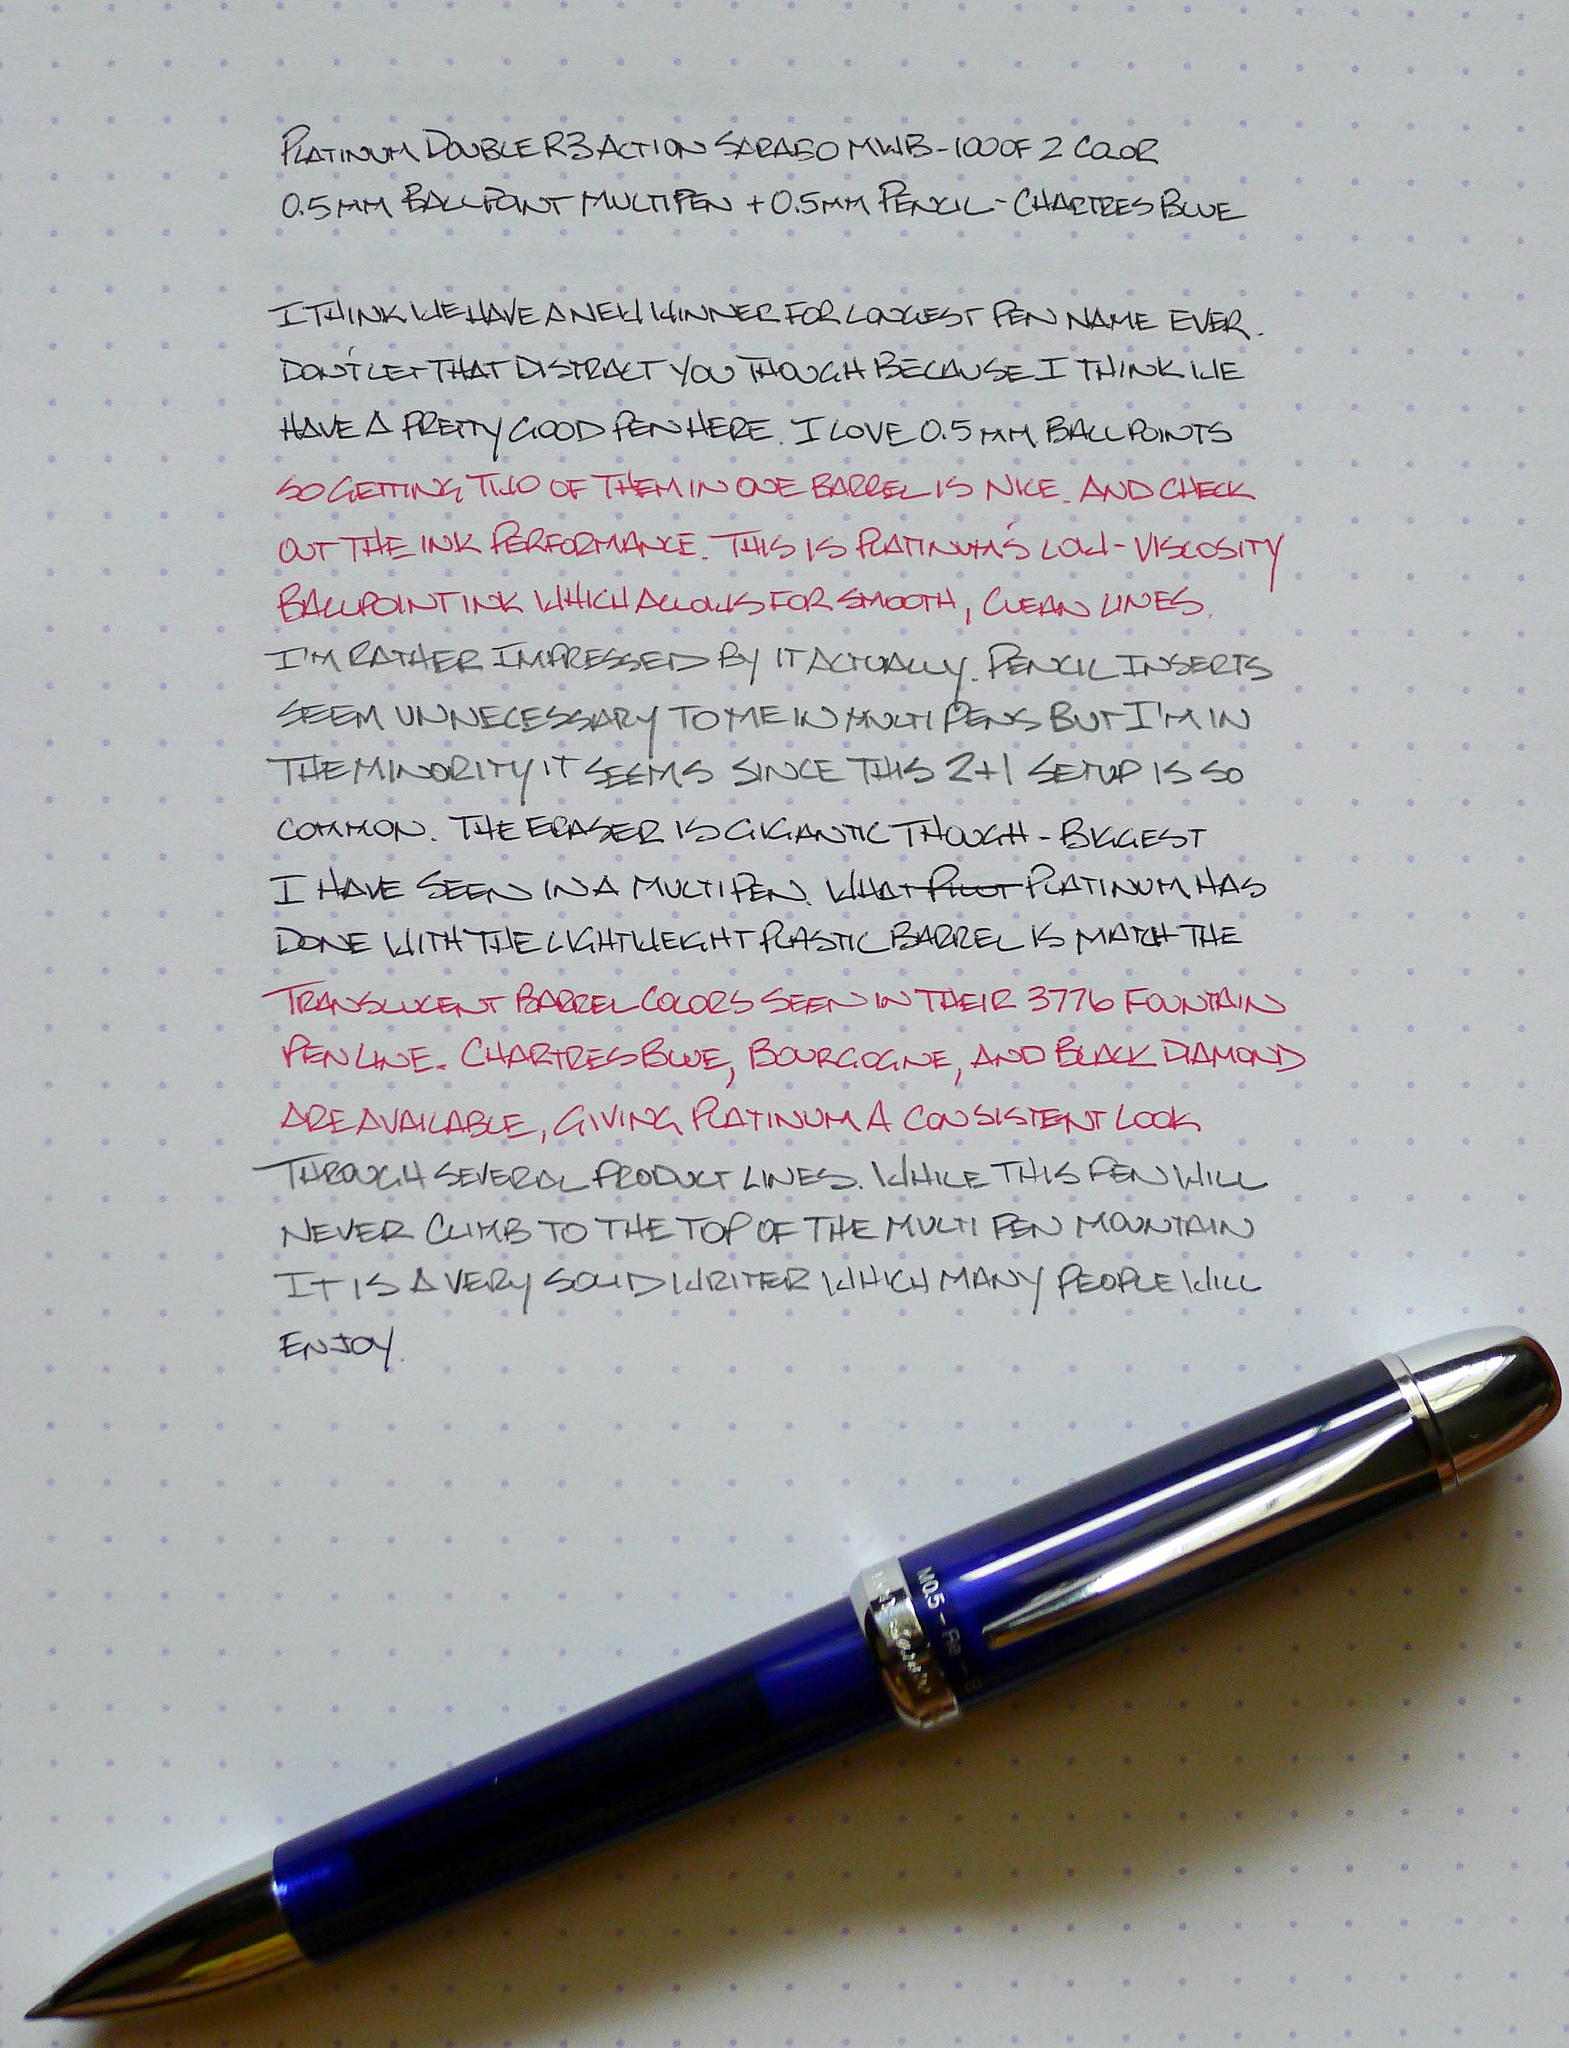 PLATINUM DOUBLE R3 ACTION SARABO MWB-1000F 2 COLOR
0.5MM BALLPOINT MULTI PEN + 0.5MM PENCIL - CHARTRES BLUE
I THINK WE HAVE A NEW WINNER FOR LONGEST PEN NAME EVER.
DON'T LET THAT DISTRACT YOU THOUGH BECAUSE I THINK WE
HAVE A PRETTY GOOD PEN HERE. I LOVE 0.5MM BALLPOINTS
SO GETTING TWO OF THEM IN ONE BARREL IS NICE. AND CHECK
OUT THE INK PERFORMANCE. THIS IS PLATINUM'S LOW-VISCOSITY
BALLPOINT INK WHICH ALLOWS FOR SMOOTH, CLEAN LINES.
I'M RATHER IMPRESSED BY IT ACTUALLY. PENCIL INSERTS
SEEM UNNECESSARY TO ME IN MULTI PENS BUT I'M IN
THE MINORITY IT SEEMS SINCE THIS 2+1 SETUP IS SO
COMMON. THE ERASER IS GIGANTIC THOUGH - BIGGEST
I HAVE SEEN IN A MULTI PEN. WHAT PILOT PLATINUM HAS
DONE WITH THE LIGHTWEIGHT PLASTIC BARREL IS MATCH THE
TRANSLUCENT BARREL COLORS SEEN IN THEIR 3776 FOUNTAIN
PEN LINE. CHARTRES BLUE, BOURGOGNE, AND BLACK DIAMOND
ARE AVAILABLE, GIVING PLATINUM A CONSISTENT LOOK
THROUGH SEVERAL PRODUCT LINES. WHILE THIS PEN WILL
NEVER CLIMB TO THE TOP OF THE MULTI PEN MOUNTAIN
IT IS A VERY SOLID WRITER WHICH MANY PEOPLE WILL
ENJOY.
M0.5 - Re - B